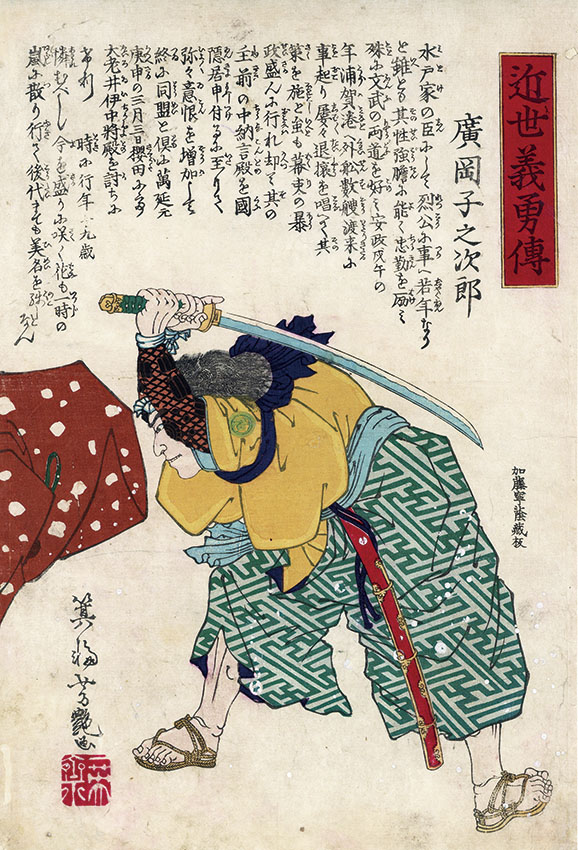 近世義勇傳
廣岡子之次郎
水戸家の臣にして烈公に事へ若年なり
と雖とも其性強膽に能く忠勤を励み
殊に文武の両道を好む安政戊午の
年浦賀港へ外舩数艘渡来に
事起り屡々退攘を唱へて其
策を施と虽も幕吏の暴
政盛んに行れ却て其の
主前の中納言殿を國
隠居申付るに至りて
弥々意恨を増加して
終に同盟と倶に萬延元
庚申の三月三日櫻田に於
大老井伊中将殿を討ちに
時に行年十九歳
憐むべし今を盛りに咲く花も一時の
嵐に散り行きて後代までも美名を残しと
なん
加藤寧蔭蔵板
箕海芳艶画